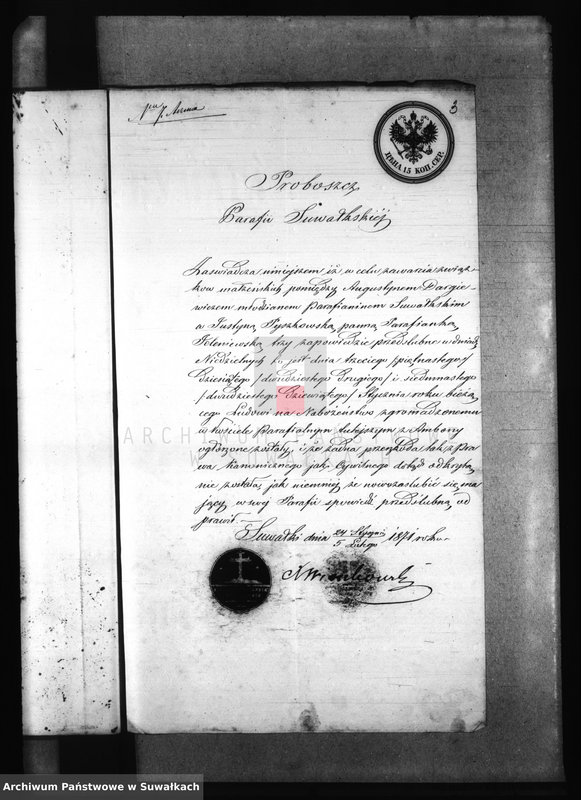 3
ЦѢНА 15 КОП. СЕР.
Proboszcz
Parafii Suwałkskiéj
Zaświadcza niniejszem iż w celu zawarcia związ-
ków małżeńskich pomiędzy Augustynem Dargie-
wiczem młodzianem Parafianinem Suwałkskim
a Justyną Pyszkowską panną Parafianką
Jeleniewską trzy zapowiedzie przedślubne w dniach
Niedzielnych to jest dnia trzeciego /piętnastego/
Dziesiątego /dwudziestego Drugiego/ i siedmnastego
/dwudziestego Dziewiątego/ Stycznia roku bieżą
cego Ludowi na Nabożeństwo zgromadzonemu
w kościele Parafialnym tutejszym z Ambony
ogłoszone zostały, i że żadna przeszkoda tak z Pra
wa kanonicznego jak Cywilnego dotąd odkrytą
nie została, jak niemniéj że nowozaślubić się ma
jący w swéj Parafii spowiedź przedślubną od
prawił.
Suwałki dnia 24 Stycznia / 5 Lutego 1871 roku.
Archiwum Państwowe w Suwałkach